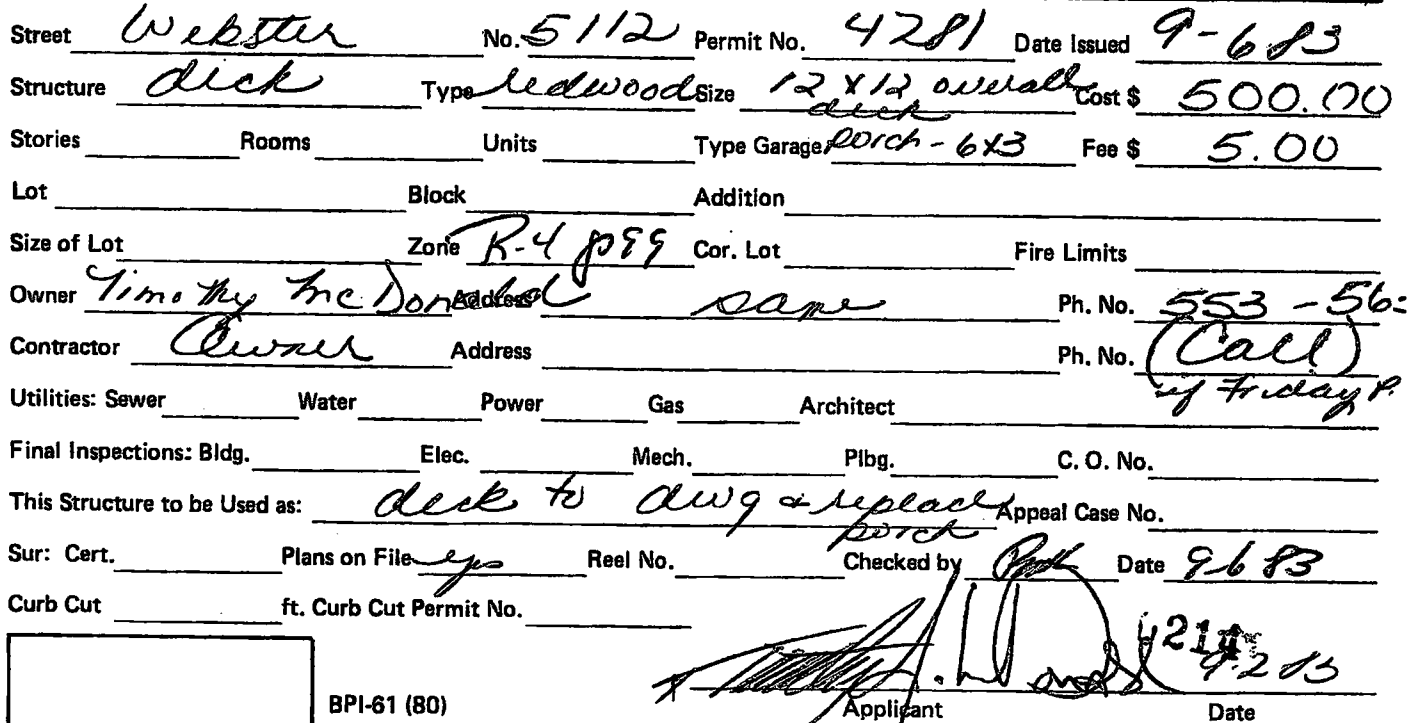 Street Webster No. 5112 Permit No. 4281 Date Issued 9-6 83
Structure deck Type redwood Size 12 x 12 overall deck Cost $ 500.00
Stories Rooms Units Type Garage porch - 6x3 Fee $ 5.00
Lot Block Addition
Size of Lot Zone R-4 p99 Cor. Lot Fire Limits
Owner Timothy McDonald Address same Ph. No. 553 - 56
Contractor Owner Address Ph. No. (Call) if Friday P.
Utilities: Sewer Water Power Gas Architect
Final Inspections: Bldg. Elec. Mech. Plbg. C. O. No.
This Structure to be Used as: deck to dwg & replace porch Appeal Case No.
Sur: Cert. Plans on File yes Reel No. Checked by Date 9 6 83
Curb Cut ft. Curb Cut Permit No.
214
9-2 83
BPI-61 (80) Applicant Date